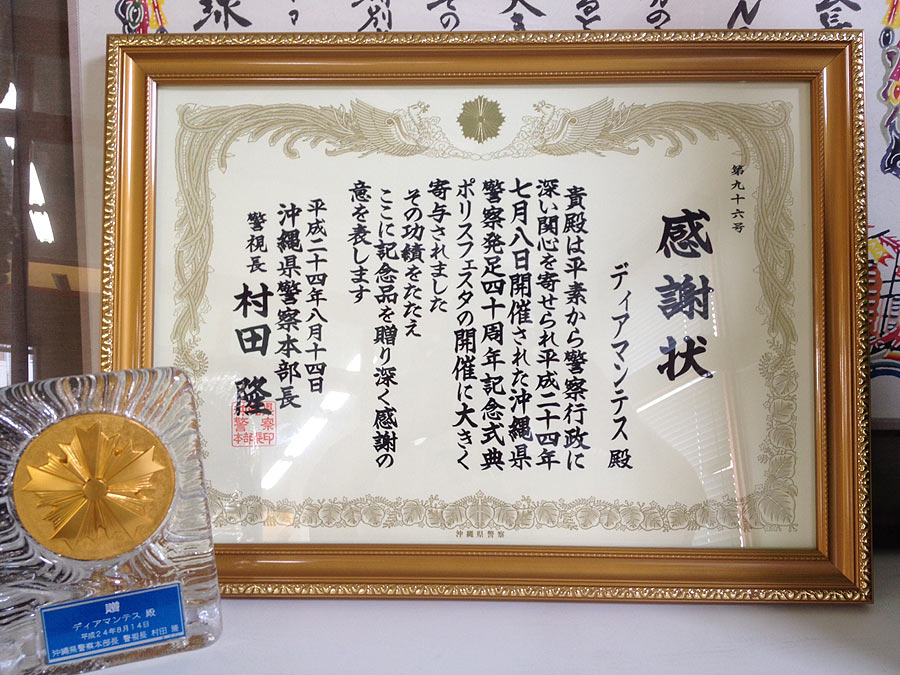 第九十六号
感謝状
ディアマンテス 殿
貴殿は平素から警察行政に
深い関心を寄せられ平成二十四年
七月八日開催された沖縄県
警察発足四十周年記念式典
ポリスフェスタの開催に大きく
寄与されました
その功績をたたえ
ここに記念品を贈り深く感謝の
意を表します
平成二十四年八月十四日
沖縄県警察本部長
警視長 村田 隆
沖縄県警察
贈
ディアマンテス 殿
平成24年8月14日
沖縄県警察本部長 警視長 村田 隆